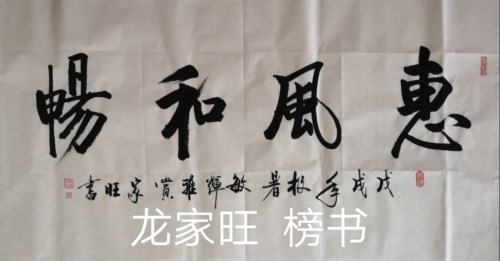 惠風和暢
戊戌年极暑敏輝雅賞家旺书
龙家旺 榜书